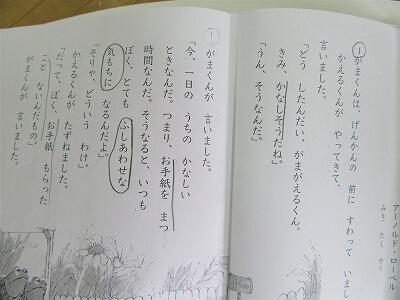 アーノルド・ローベル
みき たく やく
① がまくんは、げんかんの 前に すわって いまし
かえるくんが やってきて、
言いました。
「どう したんだい、がまがえるくん。
きみ、かなしそうだね。」
「うん、そうなんだ。」
がまくんが 言いました。
「今、一日の うちの かなしい
ときなんだ。つまり、お手紙を まつ
時間なんだ。そうなると、いつも
ぼく、とても ふしあわせな
気もちに なるんだよ。」
「そりゃ、どういう わけ。」
かえるくんが たずねました。
「だって、ぼく、お手紙 もらった
こと ないんだもの。」
がまくんが 言いました。